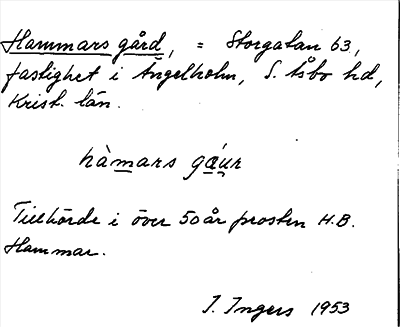 Hammars gård, = Storgatan 63,
fastighet i Ängelholm, S. Åsbo hd,
Krist. län.
hàmars gáur
Tillhörde i över 50 år prosten H.B.
Hammar.
I. Ingers 1953